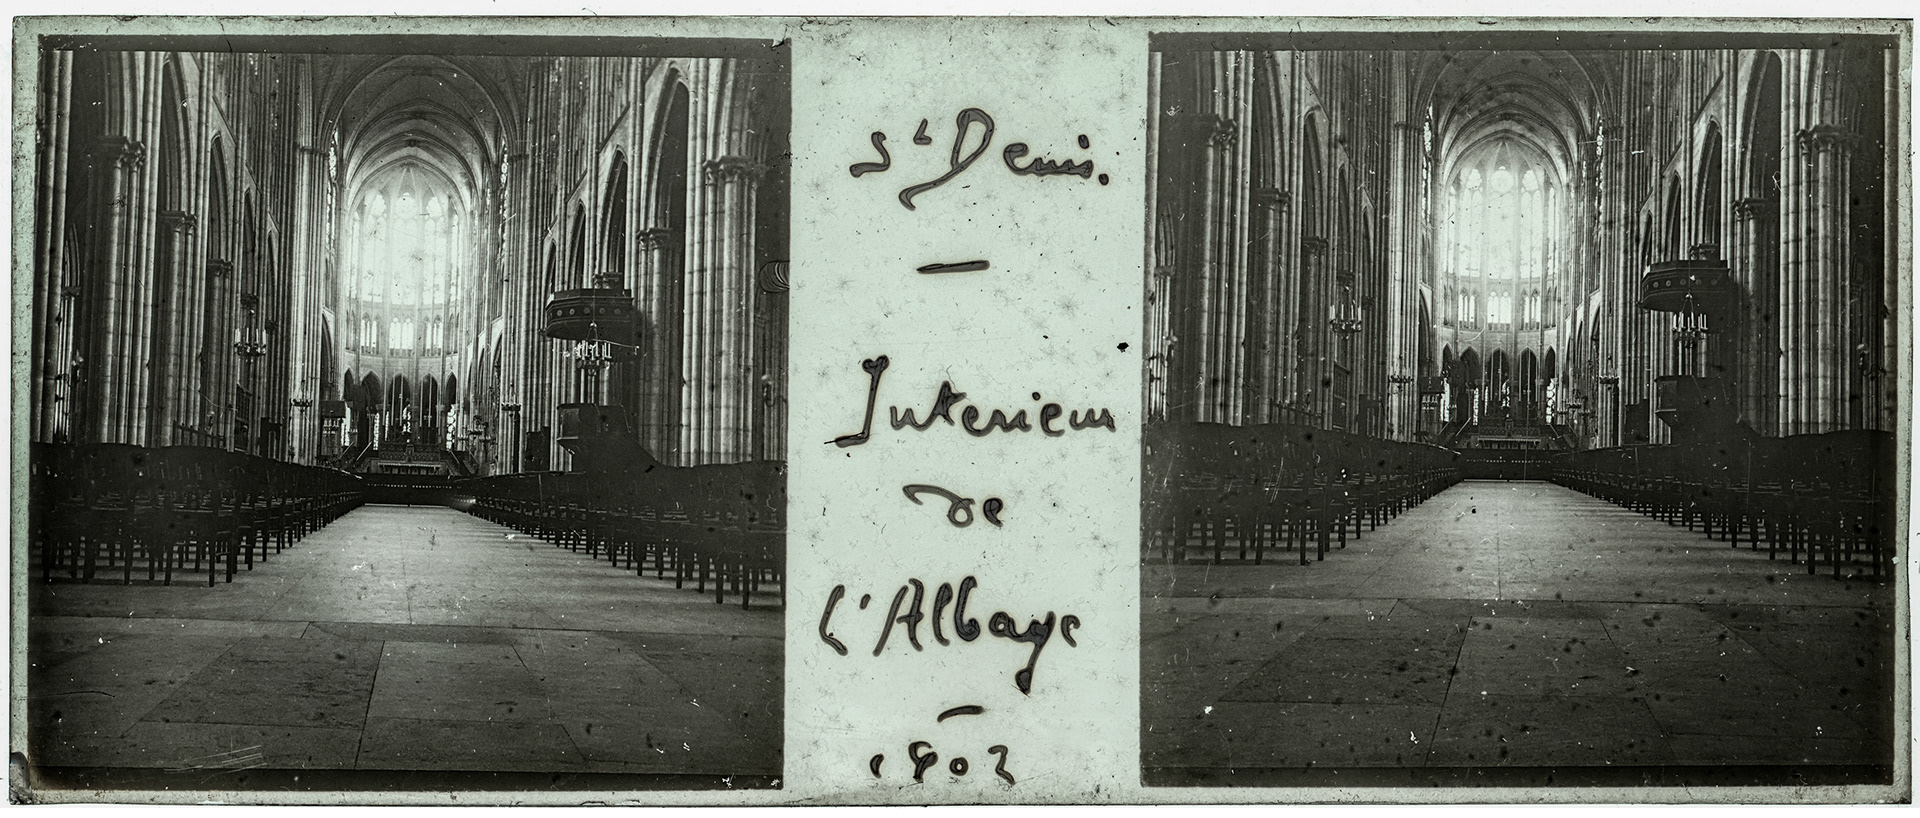 St Denis.
—
Interieur
de
l'Abbaye
—
1902